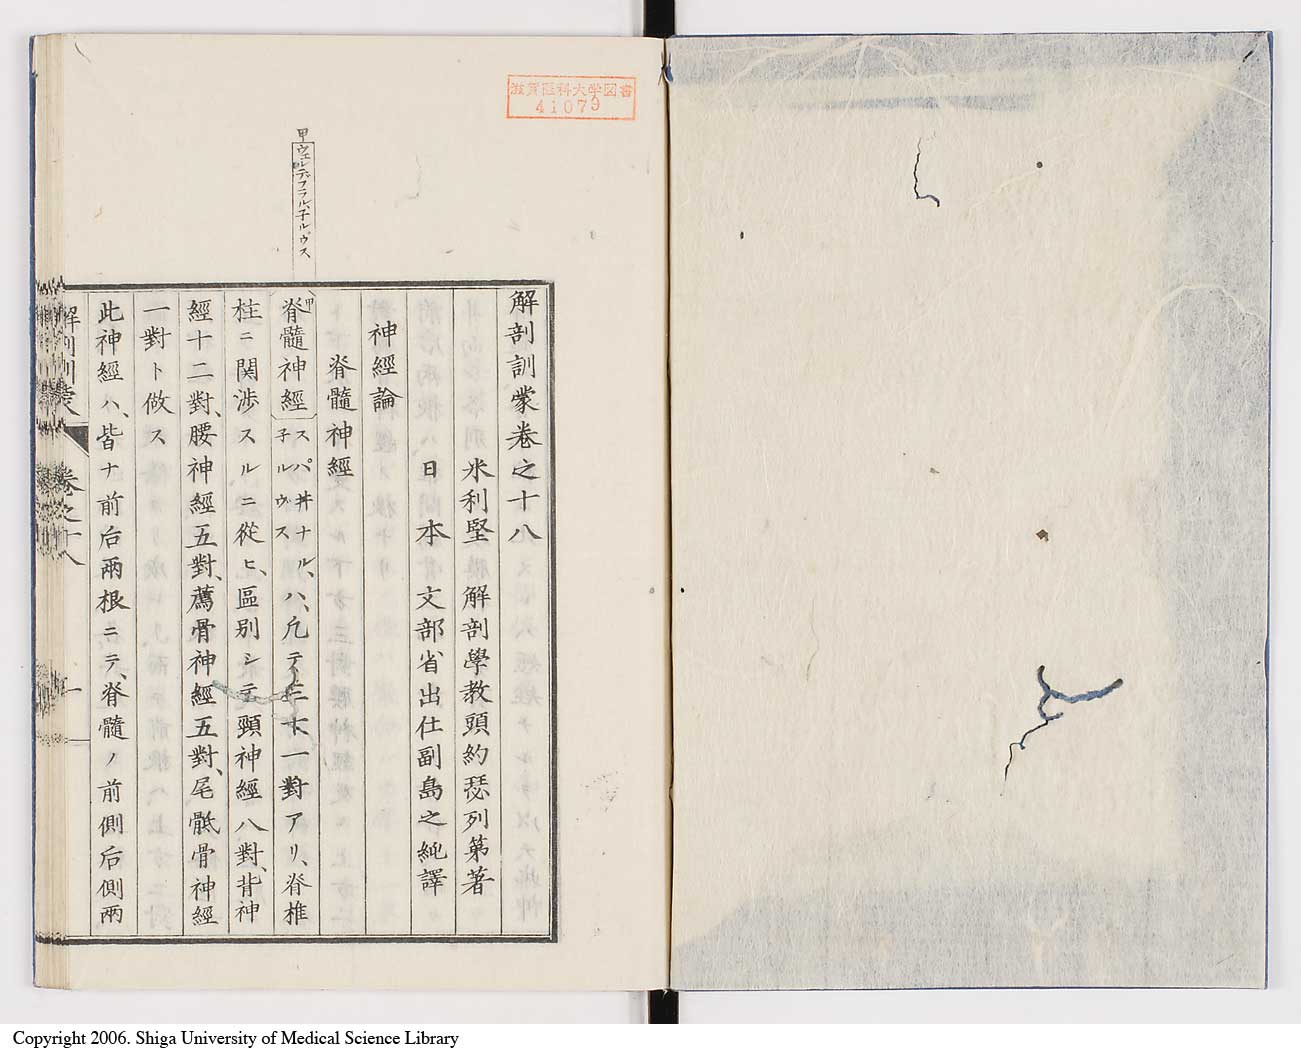 滋賀医科大学図書
41079
甲ウェルテブラル、子ルヴス
解剖訓蒙卷之十八
米利堅　解剖學教頭約瑟列第著
日本　文部省出仕副島之純譯
神經論
脊髓神經
甲脊髓神經スパ井ナル、子ルヴスハ、凡テ三十一對アリ、脊椎
柱ニ関渉スルニ從ヒ、區別シテ頸神經八對、背神
經十二對、腰神經五對、薦骨神經五對、尾骶骨神經
一對ト做ス
此神經ハ、皆ナ前后兩根ニテ、脊髓ノ前側后側兩
解剖訓蒙　卷之十八　一
Copyright 2006. Shiga University of Medical Science Library